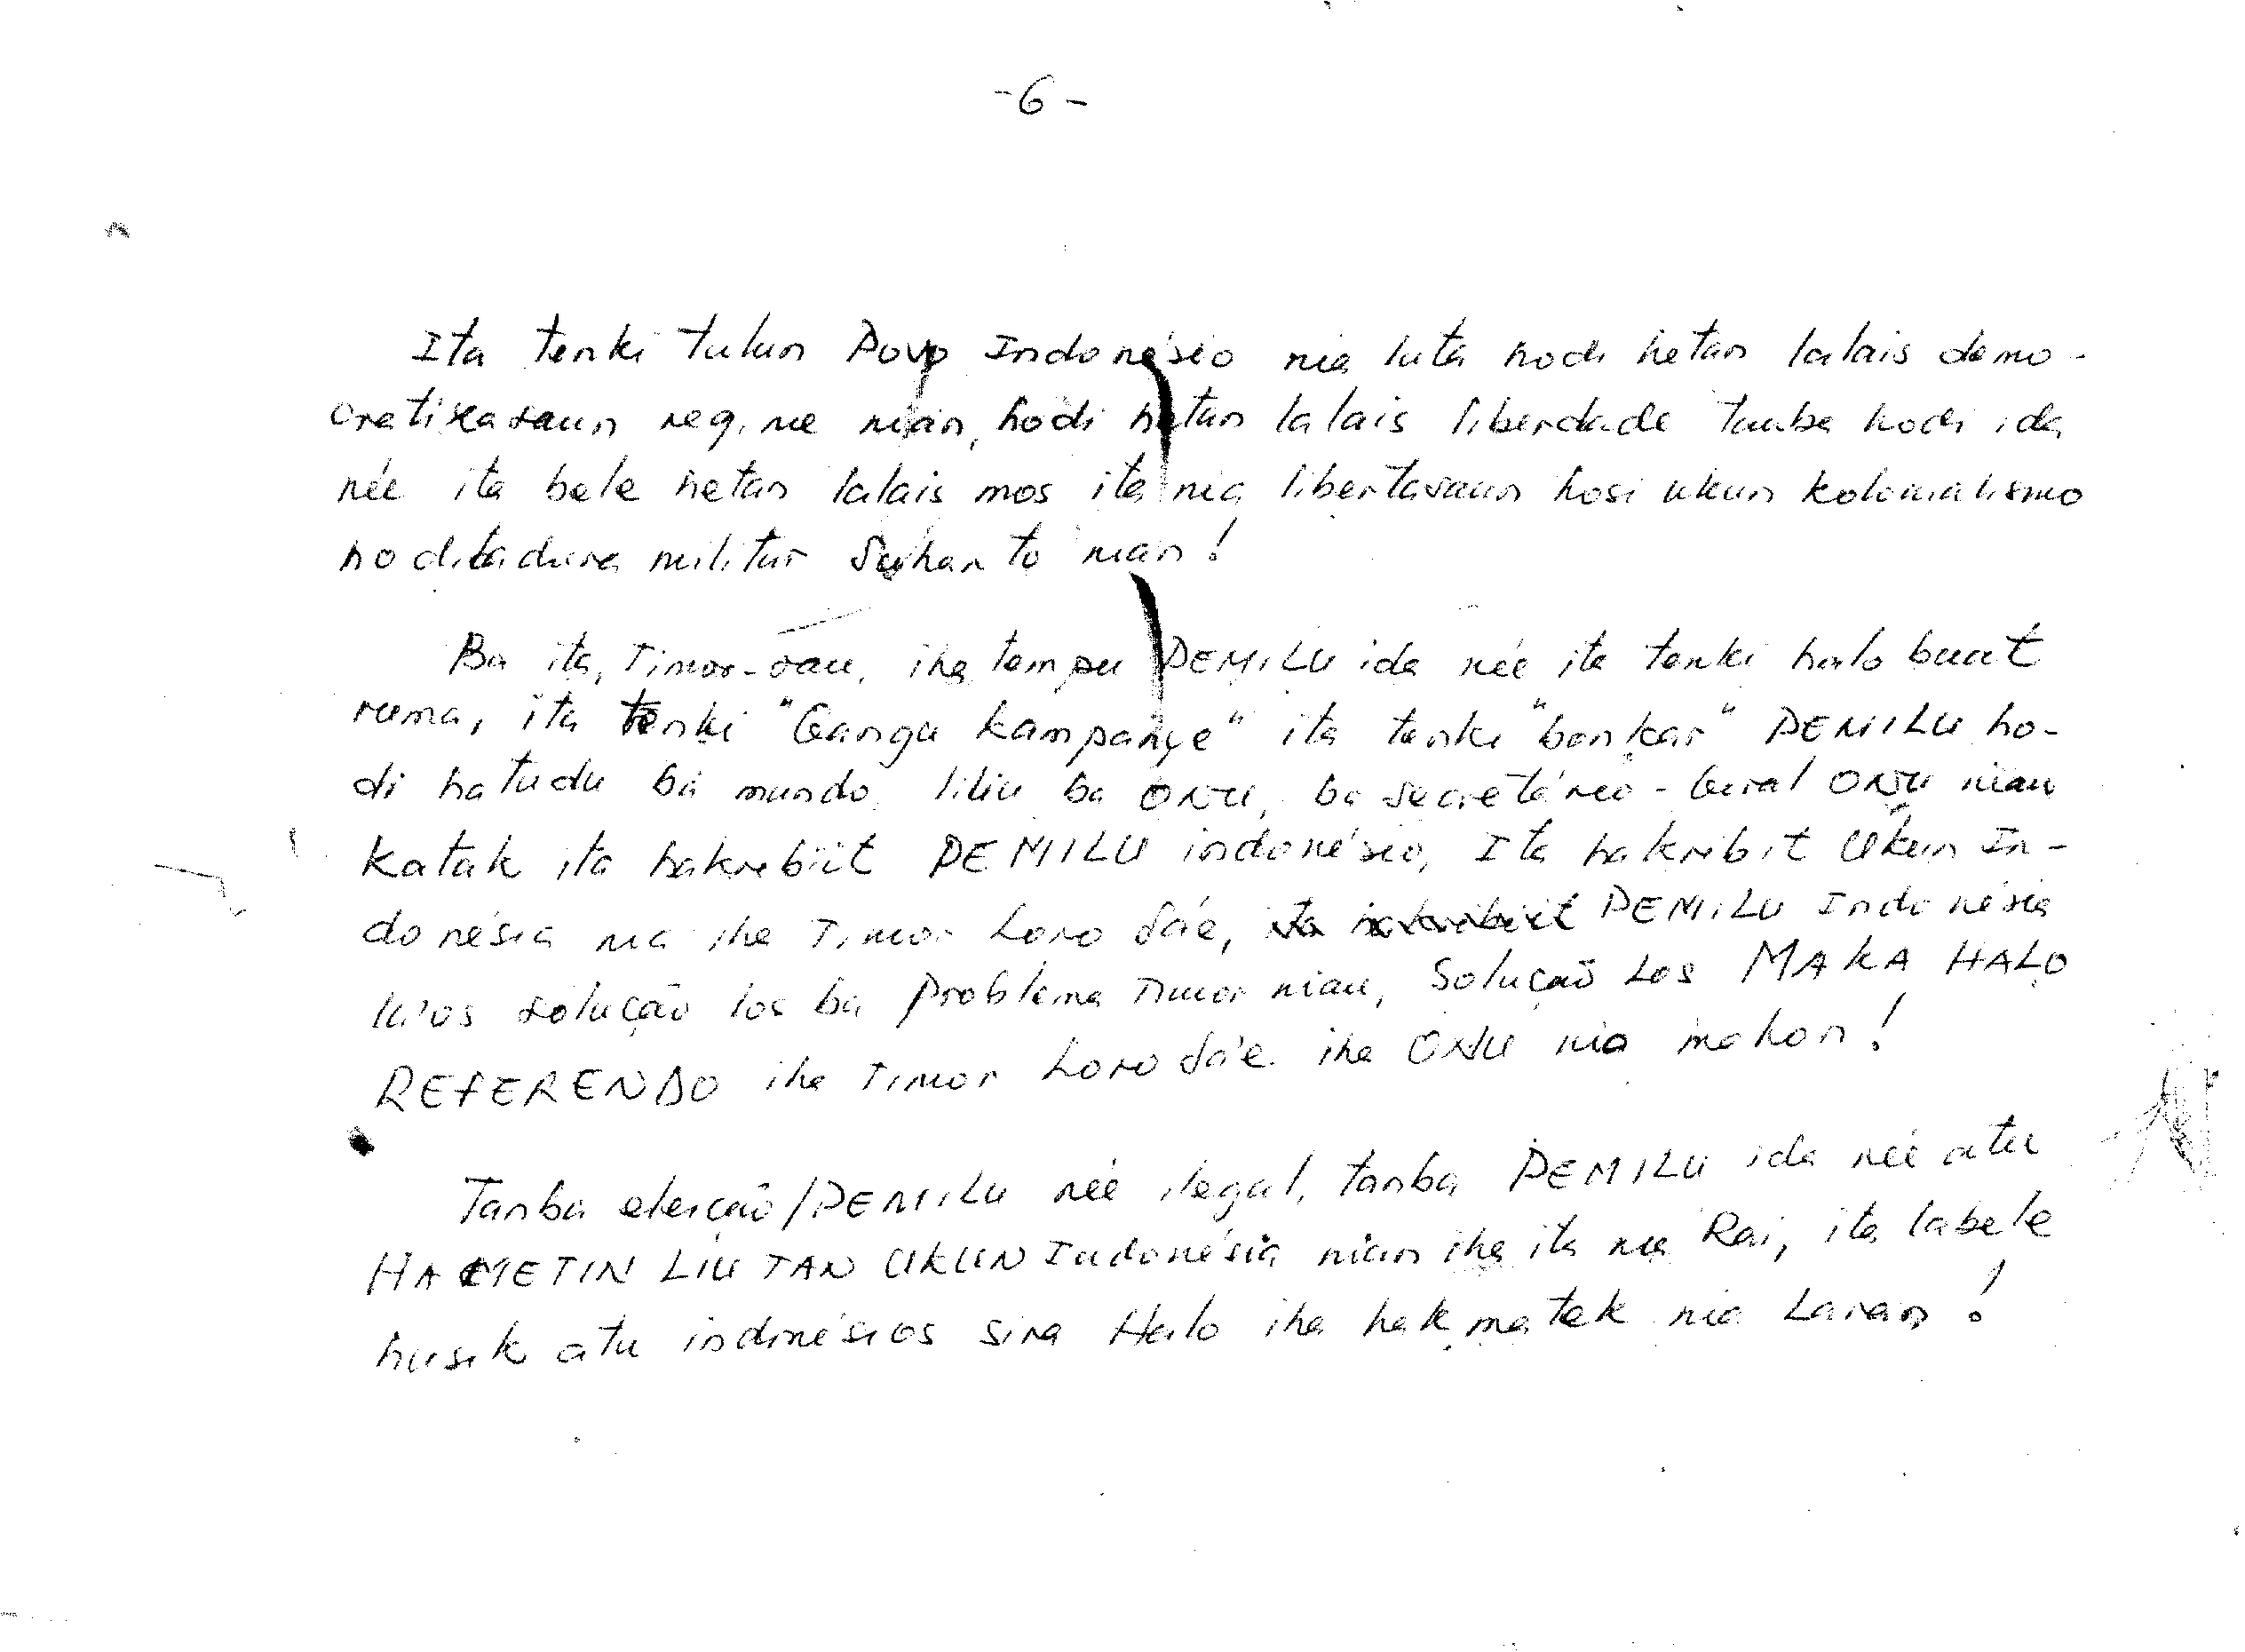 -6-
Ita tenki tulun Povo Indonésio nia luta hodi hetan lalais demo-
cratizasaun regime nian, hodi hetan lalais liberdade tanba hodi ida
née ita bele hetan lalais mos ita nia libertasaun hosi ukun kolonialismo
ho ditadura militar Suharto nian!
Ba ita, Timor-oan, iha tempu PEMILU ida née ita tenki halo buat
ruma, ita tenki "Gangu kampanye" ita tenki "bonkar" PEMILU ho-
di hatudu ba mundo, liliu ba ONU, ba secretário-Geral ONU nian
katak ita hakribiit PEMILU indonésio, Ita hakribit Ukun In-
donésia nia iha Timor Loro Sáe, PEMILU Indonésia
lu'os solução los ba problema Timor nian, Solução Los MAKA HALO
REFERENDO iha Timor Loro Sá'e iha ONU nia mahon!
Tanba eleição/PEMILU née ilegal, tanba PEMILU ida née atu
HAMETIN LIU TAN UKUN Indonésia nian iha ita nia Rai, ita labele
husik atu indonésios sira Halo iha hakmatek nia Laran!